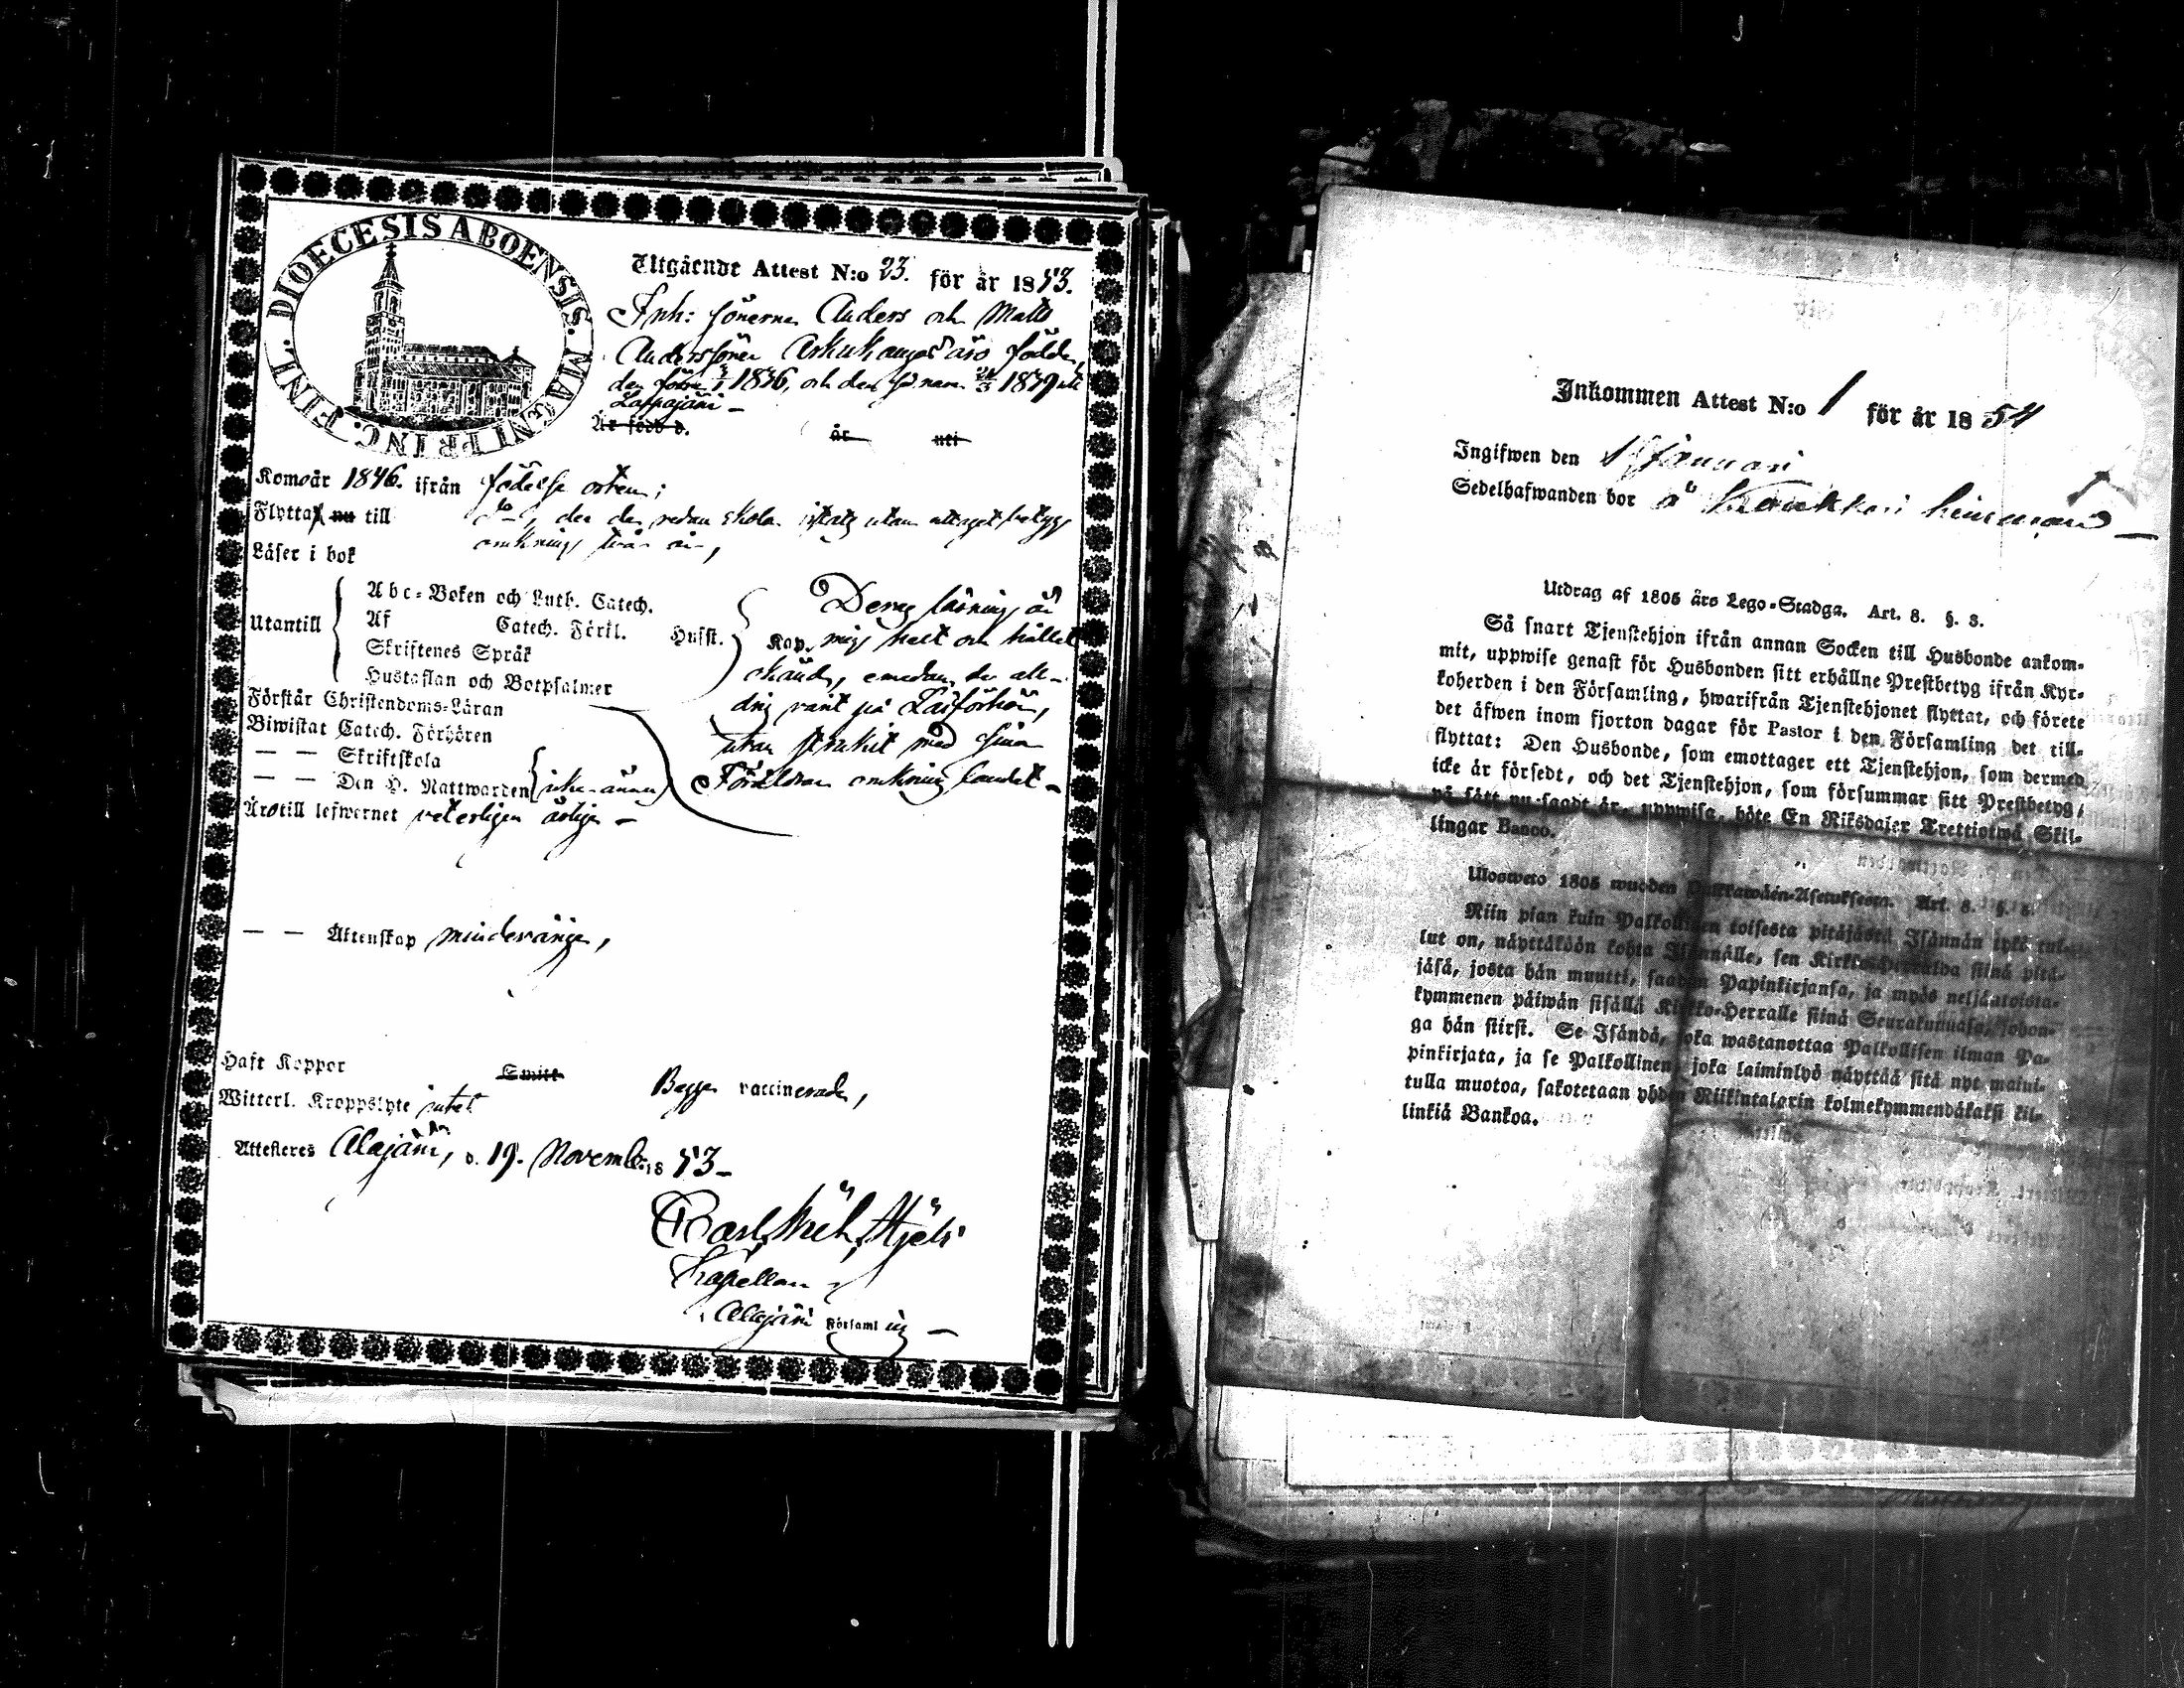 FINL. DIOECESIS ABOENSIS. MAGNI PRINC.
Utgående Attest N:o 23. för år 1853.
Inh: sönerne Anders och Matts
Anderssöner äro födde,
den förre 1836, och den 1839 uti
Lappajärvi –
Är född d. år uti
Komoår 1846. ifrån födelse orten;
Flytta nu till der de redan skola utan uttaget betyg
omkring två år,
Läser i bok
Utantill
Abc-Boken och Luth. Catech.
Af Catech. Förkl.
Skriftenes Språk
Hustaflan och Botpsalmer
Hufst. Kap.
Deras läsning är
mig helt och hållet
okänd, emedan de all-
drig varit på Läsförhör,
utan strukit med sina
Föräldrar omkring landet –
Förstår Christendoms-Läran
Biwistat Catech. Förhören
— — Skriftskola
— — Den H. Nattwarden icke ännu
Äro till lefwernet veterligen ärlige –
— — Äktenskap minderårige,
Haft Koppor Smitt Begge vaccinerade,
Witterl. Kroppslyte intet
Attesteras Alajärvi, d. 19. November 1853 –
Carl
Kapellan
i Alajärvi Församling –
Inkommen Attest N:o 1 för år 1854
Ingifwen den Januari
Sedelhafwanden bor å hemman –
Utdrag af 1805 års Lego-Stadga. Art. 8. §. 3.
Så snart Tjenstehjon ifrån annan Socken till Husbonde ankom-
mit, uppwise genast för Husbonden sitt erhållne Prestbetyg ifrån Kyr-
koherden i den Församling, hwarifrån Tjenstehjonet flyttat, och förete
det äfwen inom fjorton dagar för Pastor i den Församling det till-
flyttat: Den Husbonde, som emottager ett Tjenstehjon, som dermed
icke är försedt, och det Tjenstehjon, som försummar sitt Prestbetyg,
på sätt nu sagdt är, uppwisa, böte En Riksdaler Trettiotwå Skil-
lingar Banco.
Ulosweto 1805 wuoden Palkkawäen-Asetuksesta. Art. 8. §. 3.
Niin pian kuin Palkollinen toisesta pitäjästä Isännän tykö tul-
lut on, näyttäköön kohta Isännälle, sen Kirkko-Herralda siinä pitä-
jäsä, josta hän muutti, saadun Papinkirjansa, ja myös neljäntoista-
kymmenen päiwän sisällä Kirkko-Herralle siinä Seurakunnasa, johon-
ga hän siirsi. Se Isändä, joka wastanottaa Palkollisen ilman Pa-
pinkirjata, ja se Palkollinen, joka laiminlyö näyttää sitä nyt mainit-
tulla muotoa, sakotetaan yhden Riikintalarin kolmekymmendäkaksi kil-
linkiä Bankoa.